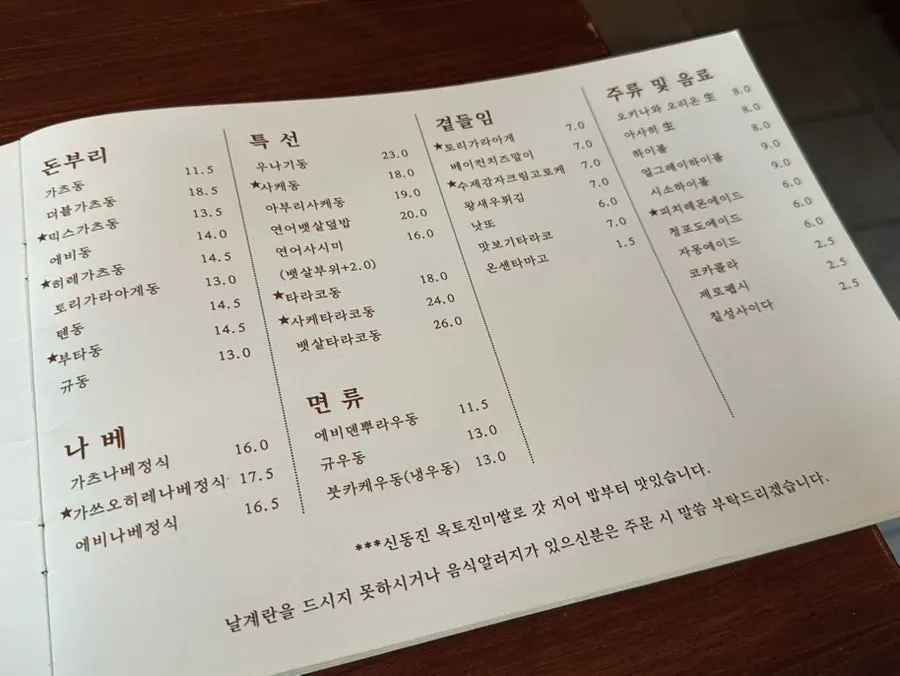 돈부리
가츠동 11.5
더블가츠동 18.5
★믹스가츠동 13.5
에비동 14.0
★히레가츠동 14.5
토리가라아게동 13.0
텐동 14.5
★부타동 14.5
규동 13.0
나베
가츠나베정식 16.0
★가쓰오히레나베정식 17.5
에비나베정식 16.5
특선
우나기동 23.0
★사케동 18.0
아부리사케동 19.0
연어뱃살덮밥 20.0
연어사시미 16.0
(뱃살부위+2.0)
★타라코동 18.0
★사케타라코동 24.0
뱃살타라코동 26.0
면류
에비덴뿌라우동 11.5
규우동 13.0
붓카케우동(냉우동) 13.0
곁들임
★토리가라아게 7.0
베이컨치즈말이 7.0
★수제감자크림고로케 7.0
왕새우튀김 7.0
낫또 6.0
맛보기타라코 7.0
온센타마고 1.5
주류 및 음료
오키나와 오리온 生 8.0
아사히 生 8.0
하이볼 8.0
얼그레이하이볼 9.0
시소하이볼 9.0
★피치레몬에이드 6.0
청포도에이드 6.0
자몽에이드 6.0
코카콜라 2.5
제로펩시 2.5
칠성사이다 2.5
***신동진 옥토진미쌀로 갓 지어 밥부터 맛있습니다.
날계란을 드시지 못하시거나 음식알러지가 있으신분은 주문 시 말씀 부탁드리겠습니다.